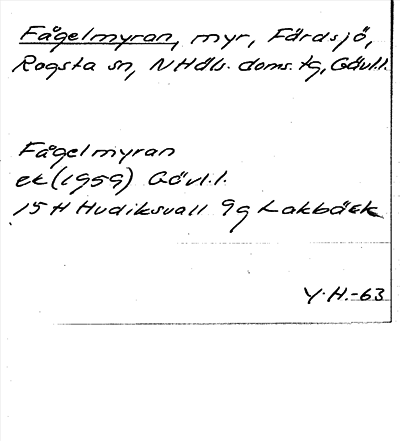 Fågelmyran, myr, Färdsjö,
Rogsta sn, NHdls. doms. tg, Gävl.l.
Fågelmyran
ek (1959) Gävl.l.
15H Hudiksvall 9g Lakbäck
Y.H.-63